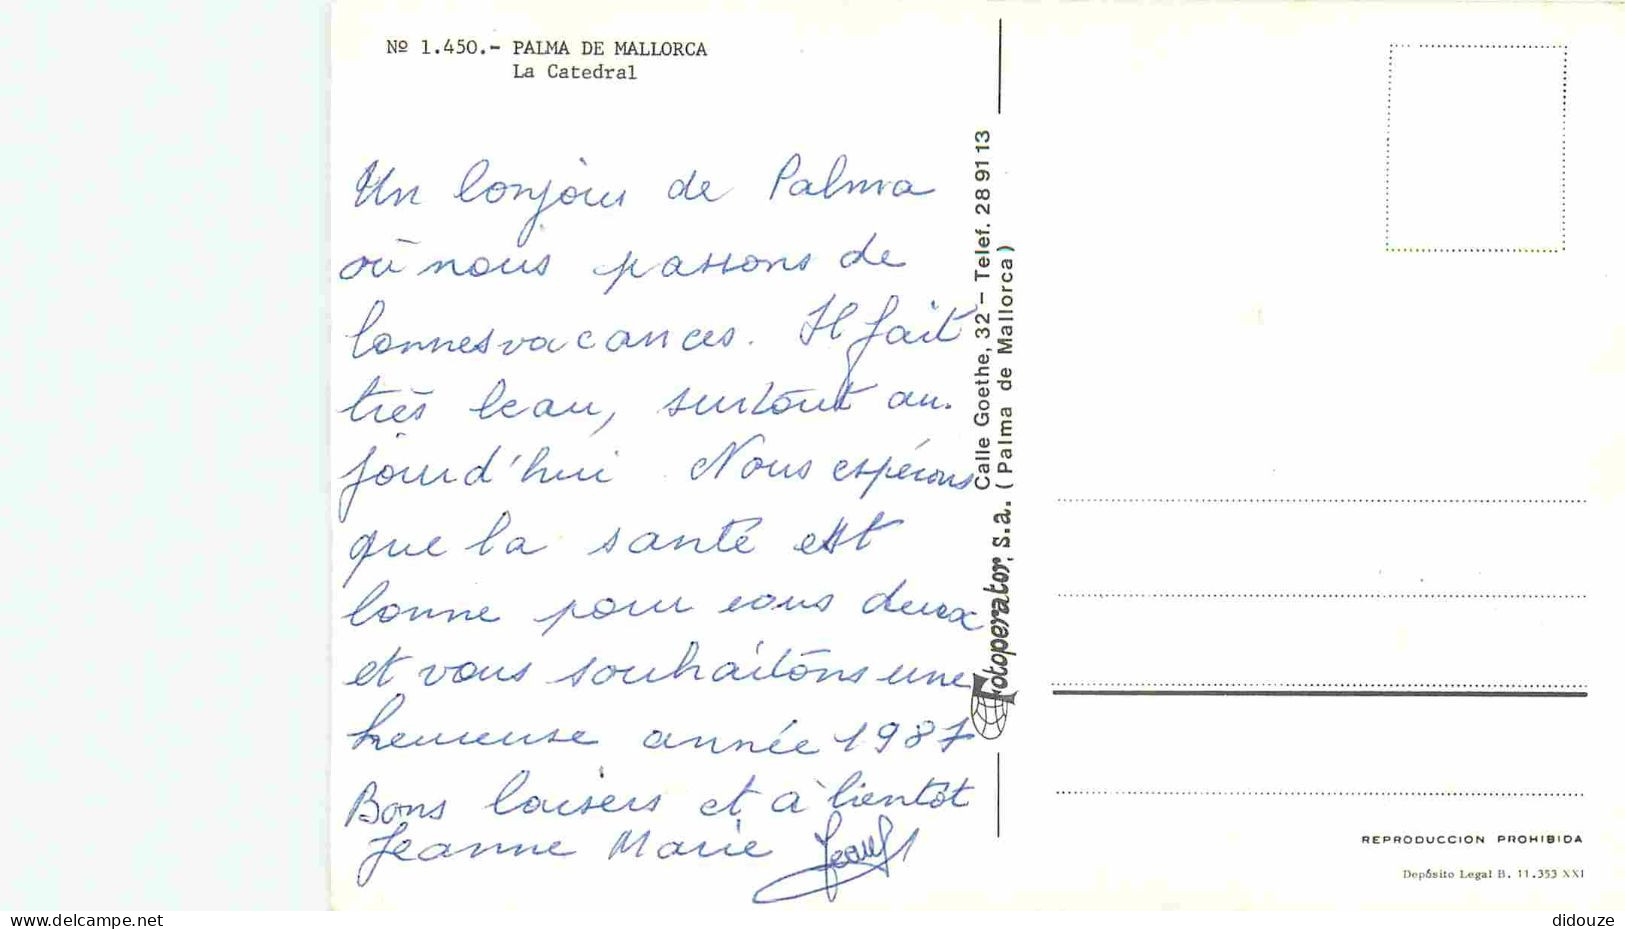 Nº 1.450.- PALMA DE MALLORCA
La Catedral
Un bonjour de Palma
où nous passons de
bonnes vacances. Il fait
très beau, surtout au.
jourd'hui. Nous espérons
que la santé est
bonne pour vous deux
et vous souhaitons une
heureuse année 1987
Bons baisers et à bientôt
Jeanne Marie
Fotoperator, s.a.
Calle Goethe, 32 - Telef. 28 91 13
(Palma de Mallorca)
REPRODUCCION PROHIBIDA
Depósito Legal B. 11.353 XXI
www.delcampe.net
didouze